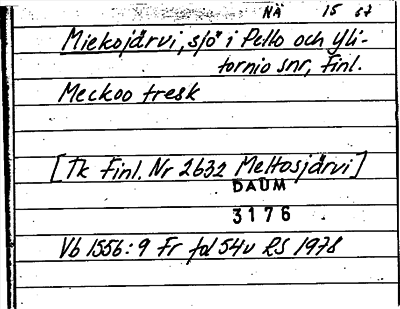 NÄ 15 67
Miekojärvi, sjö i Pello och Yli-
tornio snr, Finl.
Meckoo tresk
[Tk Finl. Nr 2632 Meltosjärvi]
DAUM
3176
Vb 1556:9 Fr fol 54v RS 1978